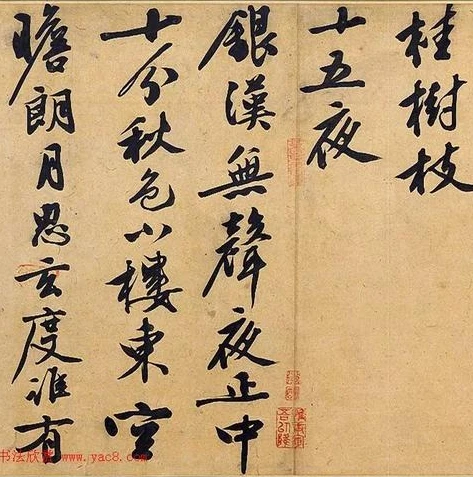 桂樹枝
十五夜
銀漢無聲夜正中
十分秋色小樓東空
瞻朗月思玄度誰有
书法欣赏 www.yac8.com